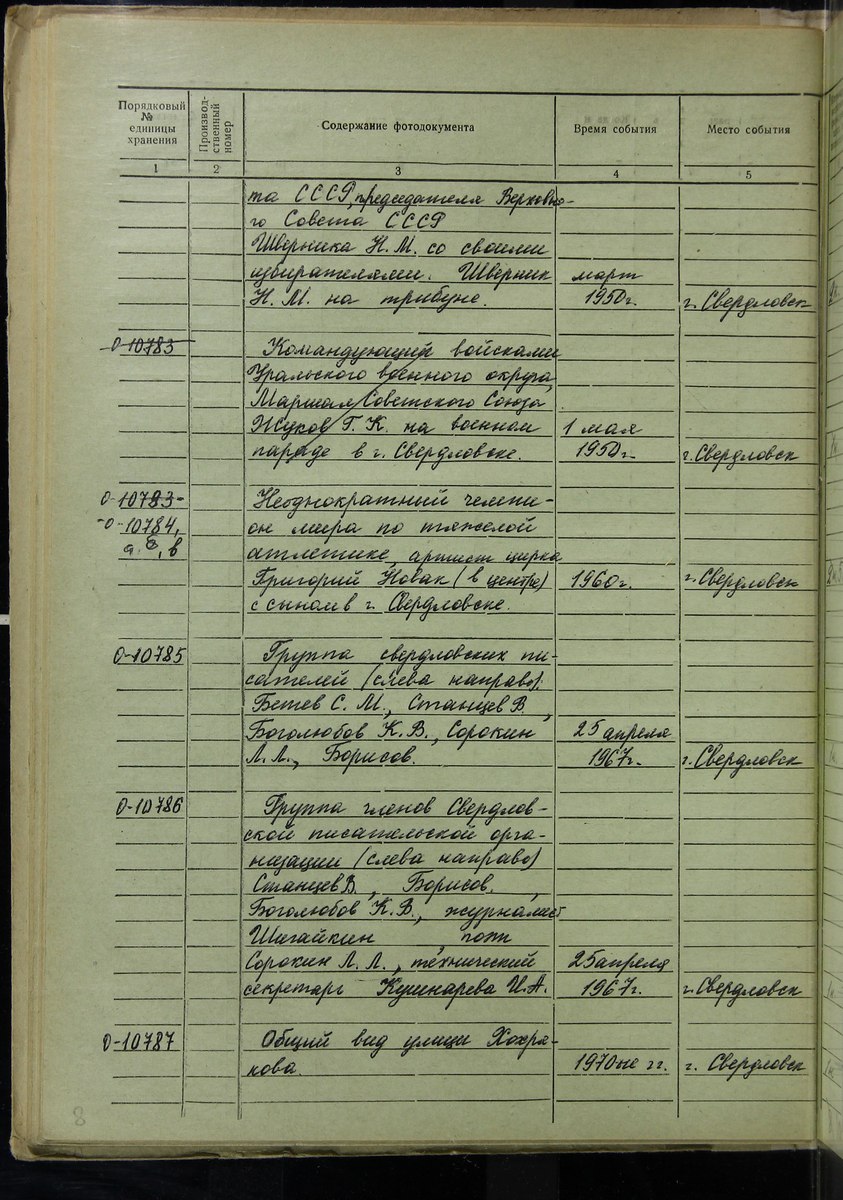 Порядковый № единицы хранения
Производ-ственный номер
Содержание фотодокумента
Время события
Место события
1 2 3 4 5
та СССР, председателя Верховно-
го Совета СССР
Шверника Н. М. со своими
избирателями. Шверник март
Н. М. на трибуне. 1950г. г. Свердловск
0-10783 Командующий войсками
Уральского военного округа,
Маршал Советского Союза
Жуков Г. К. на военном 1 мая
параде в г. Свердловске. 1950г. г. Свердловск
0-10783- Неоднократный чемпи-
-0-10784, он мира по тяжелой
а, б, в атлетике, артист цирка
Григорий Новак (в центре) 1960г. г. Свердловск
с сыном в г. Свердловске.
0-10785 Группа свердловских пи-
сателей (слева направо):
Бетев С. М., Станцев В.,
Боголюбов К. В., Сорокин 25 апреля
Л. Л., Борисов. 1967г. г. Свердловск
0-10786 Группа членов Свердлов-
ской писательской орга-
низации (слева направо)
Станцев В., Борисов.,
Боголюбов К. В., журналист
Шигайкин , поэт
Сорокин Л. Л., технический 25 апреля
секретарь Кушнарева И. А. 1967г. г. Свердловск
0-10787 Общий вид улицы Хохря-
кова. 1970ые гг. г. Свердловск
8